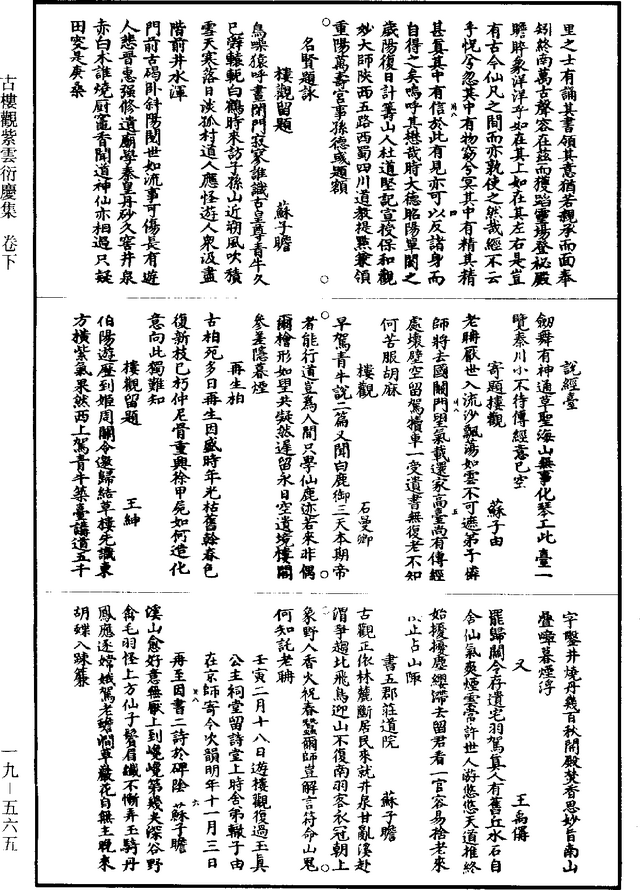 里之士有誦其書領其意猶若親承而面奉
終南萬古聲容在茲而獲蹈靈場登祕殿
瞻睟象洋洋乎如在其上如在其左右是豈
有古今仙凡之間而亦孰使之然哉經不云
乎恍兮忽其中有物窈兮冥其中有精其精
甚真其中有信於此有見亦可以反諸身而
自得之矣嗚呼其懋哉時大德昭陽單閼之
歲陽復日計籌山人杜道堅記宣授保和觀
妙大師陝西五路西蜀四川道教提點兼領
重陽萬壽宮事孫德彧題額
名賢題詠
樓觀留題 蘇子瞻
鳥噪猿呼晝閉門寂寥誰識古皇尊青牛久
已辭轅軛白鶴時來訪子孫山近朔風吹積
雪天寒落日淡孤村道人應怪遊人衆汲盡
階前井水渾
門前古碣臥斜陽閱世如流事可傷長有遊
人悲晉惠強修遺廟學秦皇丹砂久窖井泉
赤白朮誰燒厨竈香聞道神仙亦相過只疑
田叟是庚桑
說經臺
劒舞有神通草聖海山無事化琴工此臺一
覽秦川小不待傳經意已空
寄題樓觀 蘇子由
老聃厭世入流沙飄蕩如雲不可遮弟子僻
師將去國關門望氣載還家高臺尚有傳經
處壞壁空留駕犢車一受遺書無復老不知
何苦服胡麻
樓觀 石曼卿
早駕青牛說二篇又聞白鹿御三天本期帝
者能行道豈爲人間只學仙鹿迹若來非偶
爾檜形如望共凝然遲留永日空遺境樓閣
參差隱暮煙
再生柏
古柏死多日再生因盛時年光枯舊幹春色
復新枝已朽仲尼骨重興徐甲屍如何造化
意向此獨難知
樓觀留題 王紳
伯陽遊歷到姬周關令邀歸結草樓先識東
方橫紫氣果然西上駕青牛築臺講道五千
字鑿井燒丹幾百秋閒殿焚香思妙旨南山
疊嶂暮煙浮
又 王禹偁
罷歸關令存遺宅羽駕真人有舊丘水石自
含仙氣爽煙雲常許世人游悠悠天道推終
始擾擾塵纓滯去留君看一官容易捨老來
止占山陬
書五郡莊道院 蘇子瞻
古觀正依林麓斷居民來就井泉甘亂溪赴
渭爭趨北飛鳥迎山不復南羽客衣冠朝上
象野人香火祝春蠶爾師豈解言符命山鬼
何知託老聃
壬寅二月十八日遊樓觀復過玉真
公主祠堂留詩堂上時舍弟轍子由
在京師寄今次韻明年十一月三日
再至因書二詩於碑陰 蘇子瞻
溪山愈好意無厭上到巉巉第幾尖深谷野
禽毛羽怪上方仙子鬢眉纖不慚弄玉騎丹
鳳應逐嫦娥駕老蟾澗草巖花自無主晚來
胡蝶入疎簾
古樓觀紫雲衍慶集 卷下
一九—五六五